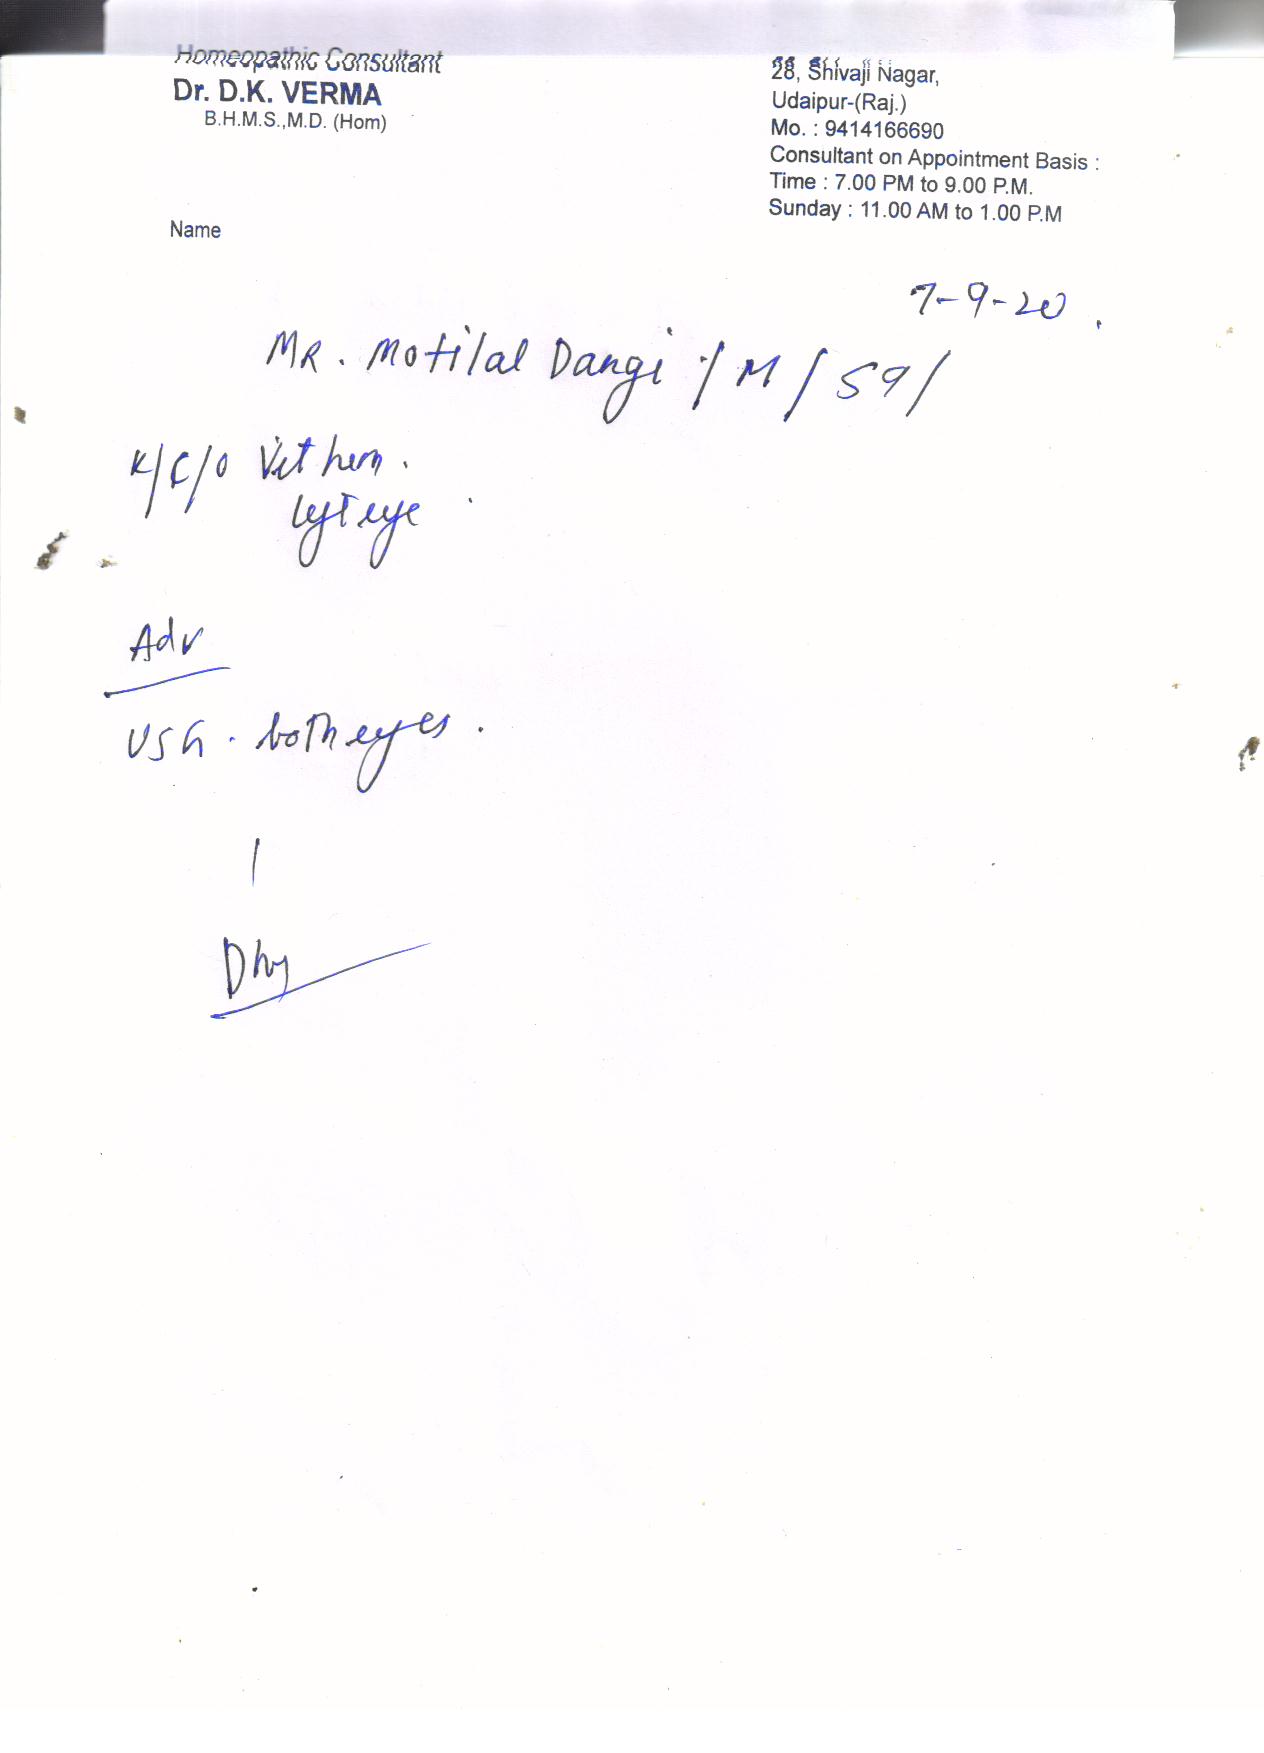 Homeopathic Consultant
Dr. D.K. VERMA
B.H.M.S.,M.D. (Hom)
28, Shivaji Nagar,
Udaipur-(Raj.)
Mo. : 9414166690
Consultant on Appointment Basis :
Time : 7.00 PM to 9.00 P.M.
Sunday : 11.00 AM to 1.00 P.M
Name
7-9-20.
MR. Motilal Dangi / M / 59/
K/C/O Vit hem.
left eye
Adv
USG. both eyes.